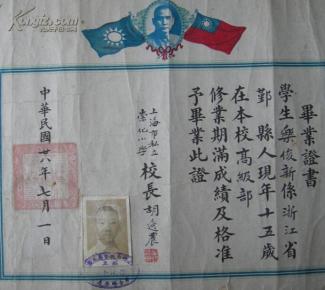 畢業證書
學生樂俊新係浙江省
鄞縣人現年十五歲
在本校高級部
修業期滿成績及格准
予畢業此證
上海市私立
崇化小學
校長胡
中華民國廿八年七月一日